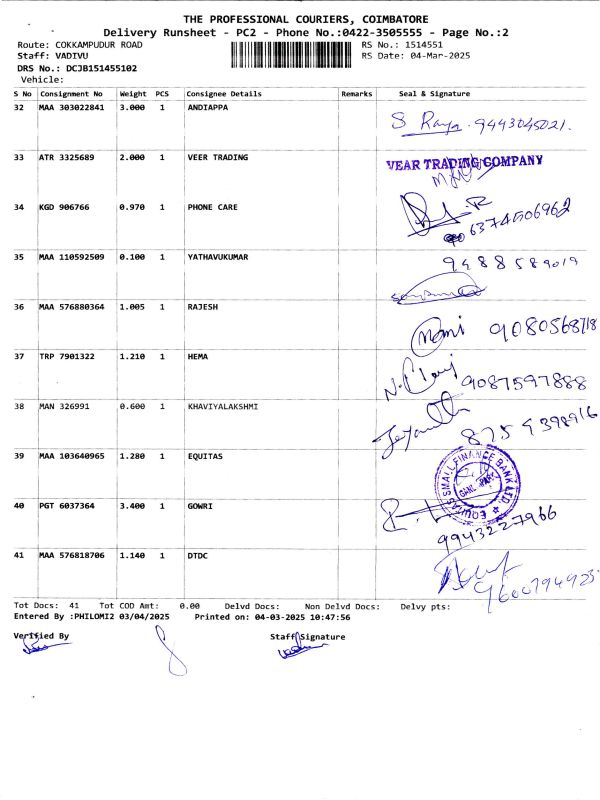 THE PROFESSIONAL COURIERS, COIMBATORE
Delivery Runsheet - PC2 - Phone No.:0422-3505555 - Page No.:2
Route: COKKAMPUDUR ROAD RS No.: 1514551
Staff: VADIVU RS Date: 04-Mar-2025
DRS No.: DCJB151455102
Vehicle:
S No Consignment No Weight PCS Consignee Details Remarks Seal & Signature
32 MAA 303022841 3.000 1 ANDIAPPA
S Raya. 9443045021.
33 ATR 3325689 2.000 1 VEER TRADING VEAR TRADING COMPANY
34 KGD 906766 0.970 1 PHONE CARE
6374506962
35 MAA 110592509 0.100 1 YATHAVUKUMAR 9488589019
36 MAA 576880364 1.005 1 RAJESH
Mami 9080568718
37 TRP 7901322 1.210 1 HEMA
9087597888
38 MAN 326991 0.600 1 KHAVIYALAKSHMI
8754398916
39 MAA 103640965 1.280 1 EQUITAS EQUITAS SMALL FINANCE BANK LTD.
40 PGT 6037364 3.400 1 GOWRI
9943227966
41 MAA 576818706 1.140 1 DTDC
Tot Docs: 41 Tot COD Amt: 0.00 Delvd Docs: Non Delvd Docs: Delvy pts:
Entered By :PHILOMI2 03/04/2025 Printed on: 04-03-2025 10:47:56
Verified By Staff Signature